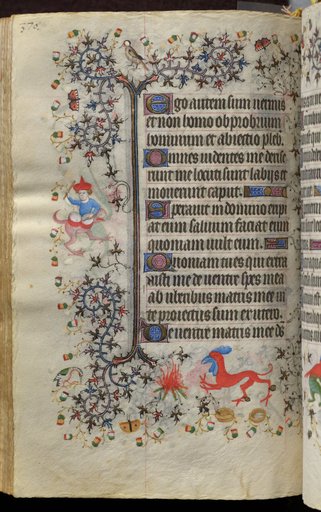 Ego autem sum vermis
et non homo obprobrium
hominum et abiectio pleb
Omnes videntes me derise
runt me locuti sunt labijs et
moverunt caput
Speravit in domino eripi
at eum salvum faciat eum
quoniam vult eum
Quoniam tu es qui extra
xisti me de ventre spes mea
ab uberibus matris mee in
te proiectus sum ex utero
De ventre matris mee ds